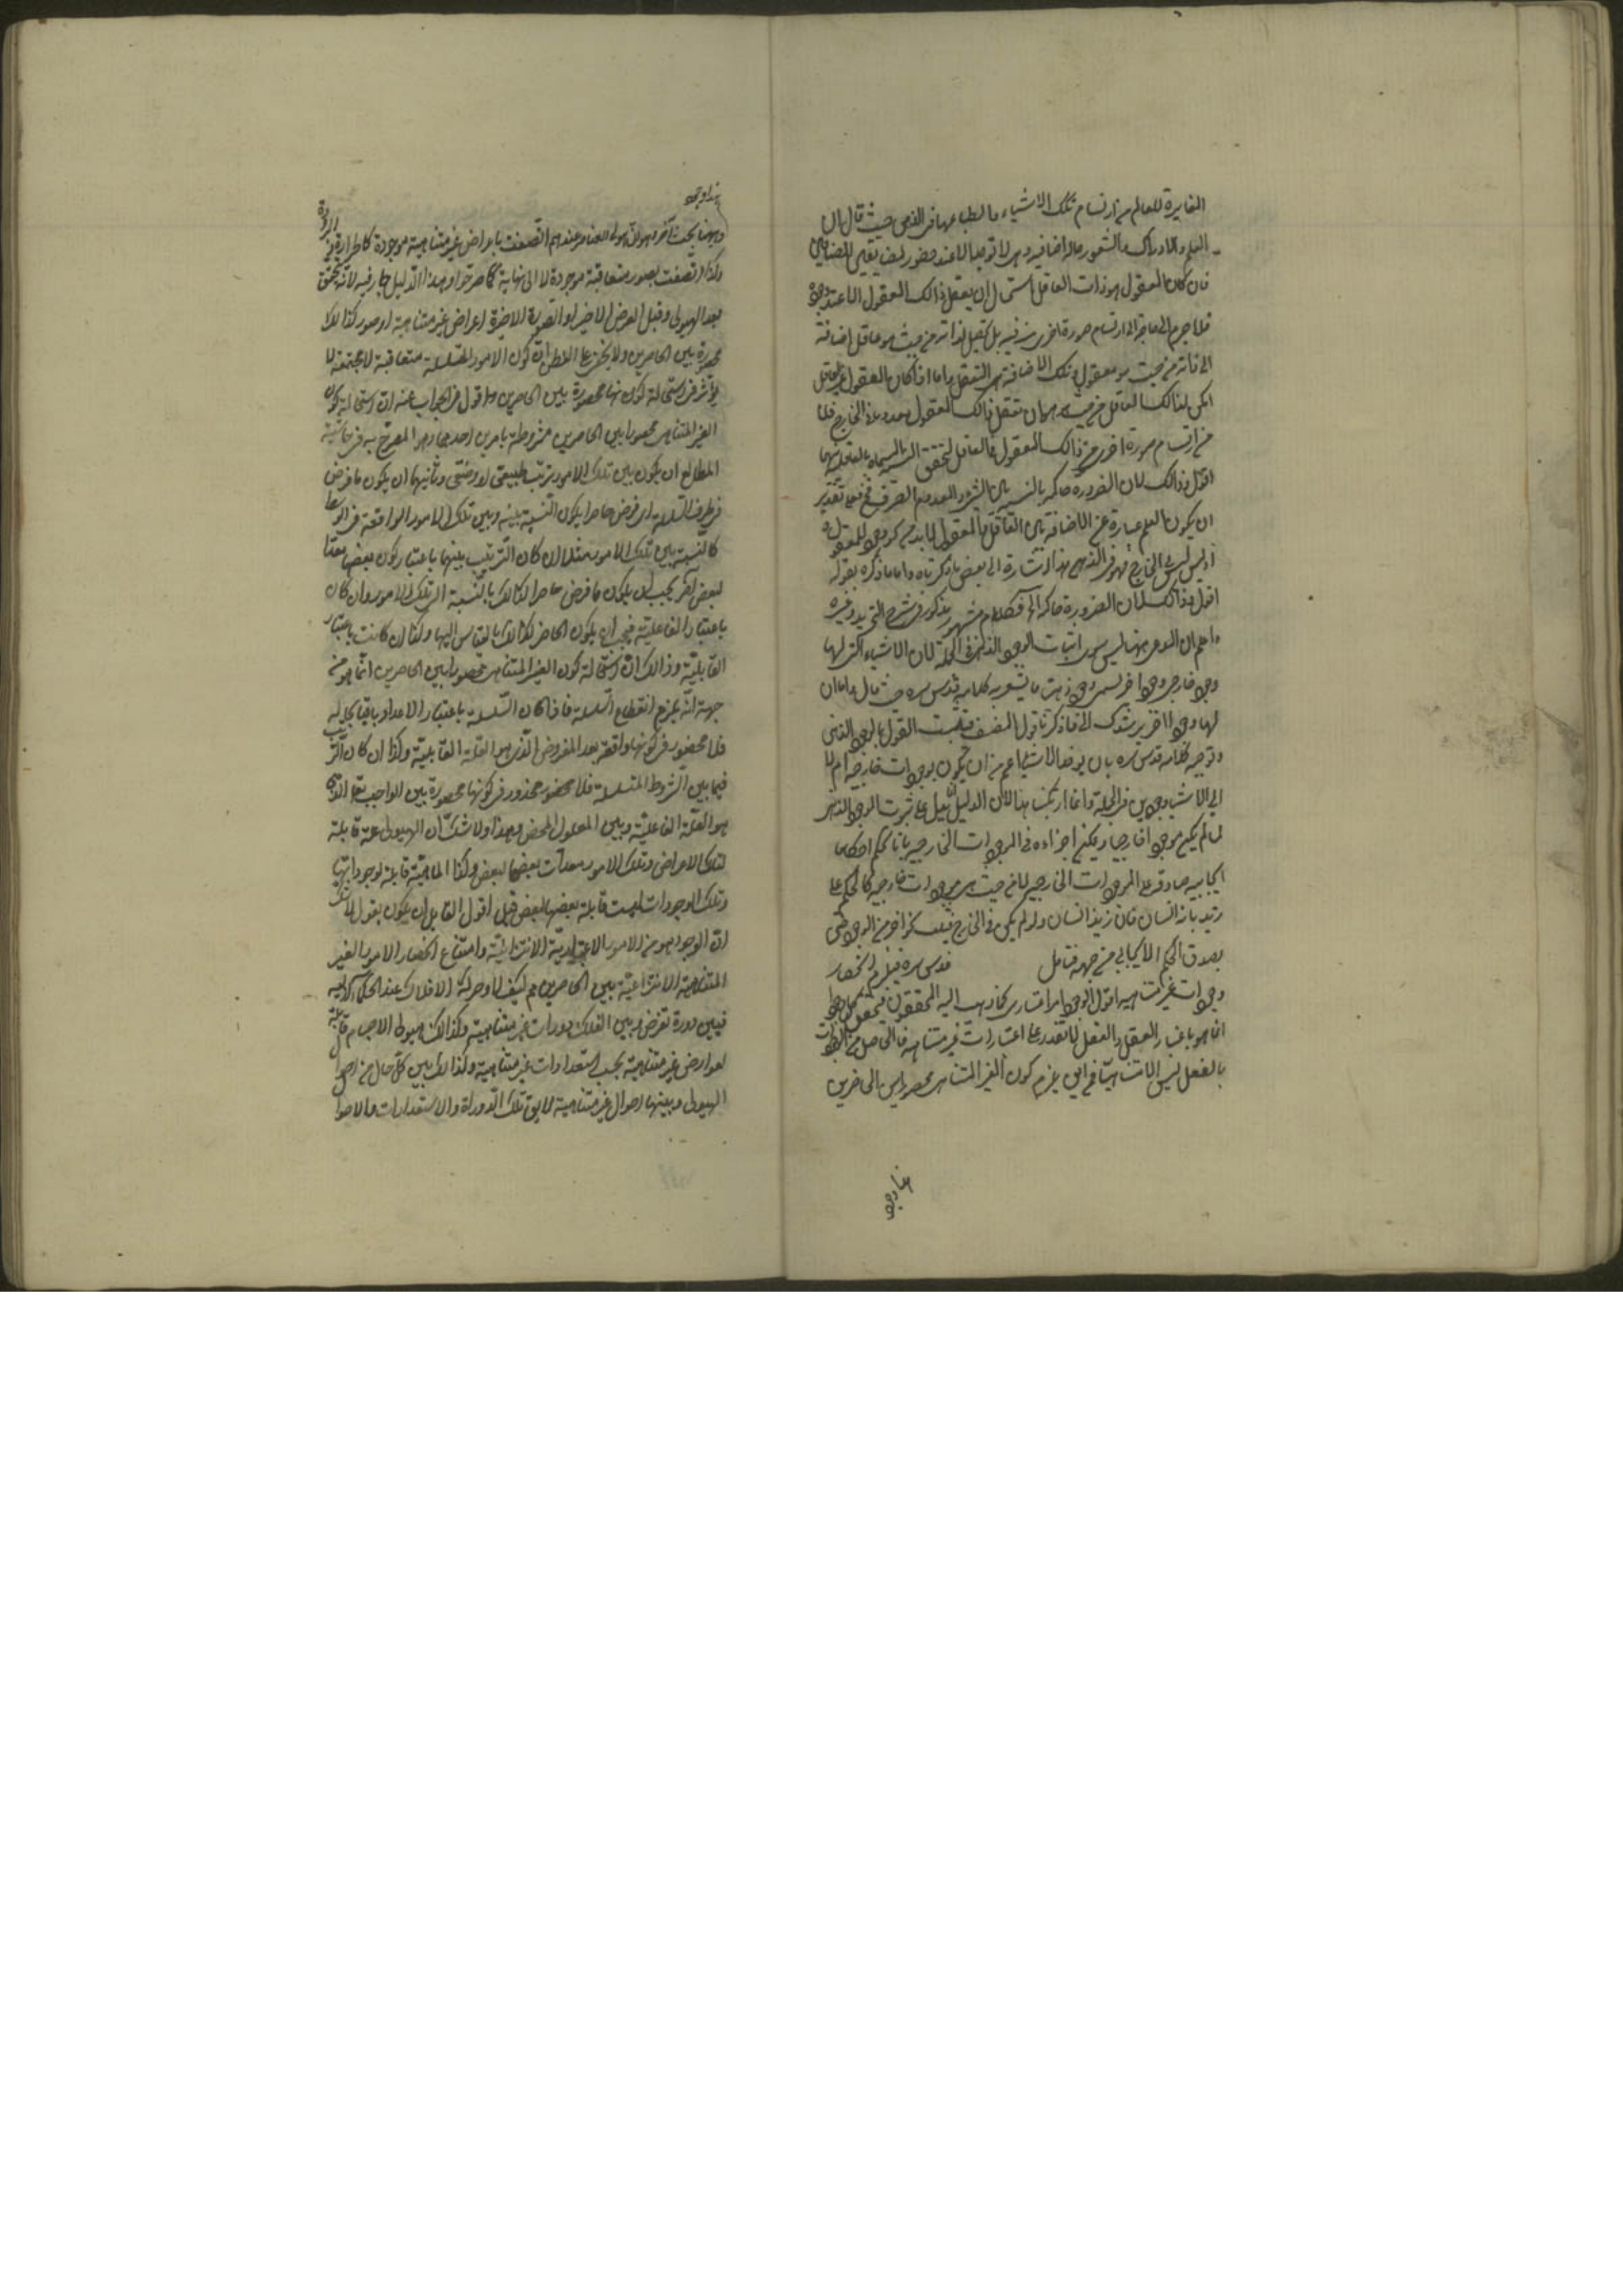 المغايرة للعالم من ارتسام تلك الاشياء وانطباعها في الذهن حيث قال ان
العلم والادراك والشعور حالة اضافية وهى لا توجد الا عند حضور المضافين
فان كان المعقول هو ذات العاقل استحال ان يعقل ذالك المعقول الا عند وجوده
فلا جرم لا حاجة الى ارتسام صورة اخرى منه فيه بل يحصل لذاته من حيث هو عاقل اضافة
الى ذاته من حيث هو معقول وتلك الاضافة هى التعقل واما اذا كان المعقول غير العاقل
امكن لذالك العاقل من حيث هو هو ان يعقل ذالك المعقول معدوما فى الخارج فلا
من ارتسام صورة اخرى من ذالك المعقول فى العاقل لتحقق النسبة المسماة بالعاقلية بينهما
اقول وذالك لان الضرورة حاكمة بالنسبة بين الشىء والمعدوم الصرف فعلى تقدير
ان يكون العلم عبارة عن الاضافة بين العاقل والمعقول لا بد من وجود المعقول
اذ ليس ليس فى الخارج فهو فى الذهن هذا اشارة الى بعض ما ذكرناه واما ما ذكره بقوله
اقول وذالك لان الضرورة حاكمة الى آخره كلام مشهور مذكور فى شرح التجريد وغيره
واعلم ان المدعى ههنا ليس سوى اثبات الوجود الذهنى فى الجملة لان الاشياء التى لها
وجود خارجى وجودا آخر يسمى وجود ذهنى ما يشعر به كلامه قدس سره حيث قال واما ان
لها وجودا آخر يرشدك الى ما ذكرنا قول المصنف فيثبت القول بالوجود الذهنى
وتوجيه كلامه قدس سره بان يوخذ الاشياء اعم من ان يكون موجودات خارجية ام لا
اى الاشياء وجودين فى الجملة وانما ارتكبنا هذا لان الدليل انما يدل على ثبوت الوجود الذهنى
لما لم يكن موجودا خارجيا ويمكن اجراءه فى الموجودات الخارجية بانا نحكم احكاما
ايجابية صادقة على الموجودات الخارجية لا من حيث هى موجودات خارجية كالحكم على
زيد بانه انسان فان زيد انسان ولو لم يكن فى الخارج فيثبت نحو آخر من الوجود حتى
يصدق الحكم الايجابى من جهة فتامل قدس سره فيلزم انحصار
وجودات غير متناهية اقول الوجود امر اعتبارى كما ذهب اليه المحققون فتحقق كل وجود
انما هو باعتبار العقل والعقل لا يقدر على اعتبارات غير متناهية فالحاصل من الوجودات
بالفعل ليس الا متناهيا فمن اين يلزم كون الغير المتناهى محصورا بين الحاصرين
هذا وجه
وههنا بحث آخر وهو ان هيولى العناصر عندهم اتصفت باعراض غير متناهية موجودة كالحرارة والبرودة
وكذا اتصفت بصور متعاقبة موجودة لا الى نهاية كما صرحوا وهذا الدليل جار فيه لانه يتحقق
بعد الهيولى وقبل العرض الاخير او الصورة الاخيرة اعراض غير متناهية او صور كذالك
محصورة بين الحاصرين ولا يخفى على الفطن ان كون الامور المتسلسلة متعاقبة لا مجتمعة لا
يؤثر فى استحالة كونها محصورة بين الحاصرين واقول فى الجواب عنه ان استحالة كون
الغير المتناهى محصورا بين الحاصرين مشروطة بامرين احدهما وهو المصرح به فى حاشية
المطالع ان يكون بين تلك الامور ترتب طبيعى او وضعى وثانيهما ان يكون ما فرض
فى طرف السلسلة اى فرض حاصرا يكون النسبة بينه وبين تلك الامور الواقعة فى الوسط
كالنسبة بين تلك الامور مثلا ان كان الترتيب بينهما باعتبار كون بعضها معدا
لبعض آخر يجب ان يكون ما فرض حاصرا كذالك بالنسبة الى تلك الامور وان كان
باعتبار الفاعلية فيجب ان يكون الحاصر كذالك بالقياس اليها وكذا ان كانت باعتبار
القابلية وذالك لان استحالة كون الغير المتناهى محصورا بين الحاصرين انما هو من
جهة انه يلزم انقطاع السلسلة فاذا كان السلسلة باعتبار الاعداد باقيا بحاله
فلا محضور فى كونها واقعة بعد المفروض الذى هو العلة القابلية وكذا ان كان الترتيب
فيما بين الشروط المتسلسلة فلا محضور محذور فى كونها محصورة بين الواجب تعالى الذى
هو العلة الفاعلية وبين المعلول المحض وبهذا ولا شك ان الهيولى علة قابلة
لتلك الاعراض وتلك الامور معدات بعضها لبعض وكذا الماهية قابلة لوجوداتها
وتلك الوجودات ليست قابلة بعضها لبعض قيل اقول القابل ان يكون يقول لا شك
ان الوجود هو من الامور الاعتبارية الانتزاعية وامتناع انحصار الامور الغير
المتناهية الانتزاعية بين الحاصرين مم كيف لا وحركة الافلاك عند الحكماء ازلية
فبين دورة تفرض وبين الفلك دورات غير متناهية وكذالك هيولى الاجسام قابلة
لعوارض غير متناهية بحسب استعدادات غير متناهية وكذالك بين كل حال من احوال
الهيولى وبينها احوال غير متناهية لا يق تلك الدوراة والاستعدادات والاحوا